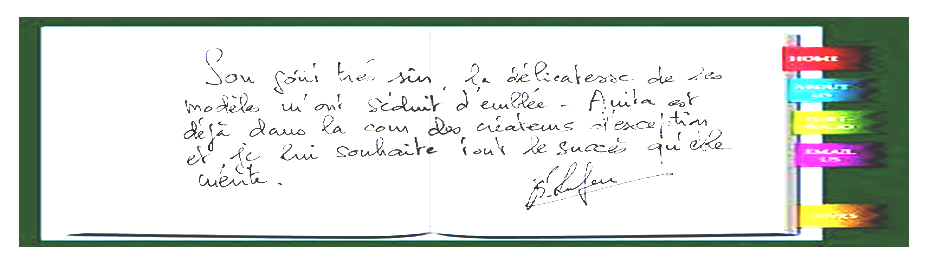 Son goût très sûr, la délicatesse de ses
modèles m'ont séduit d'emblée. Anita est
déjà dans la cour des créateurs d'exception
et je lui souhaite tout le succès qu'elle
mérite.
HOME
ABOUT US
EMAIL US